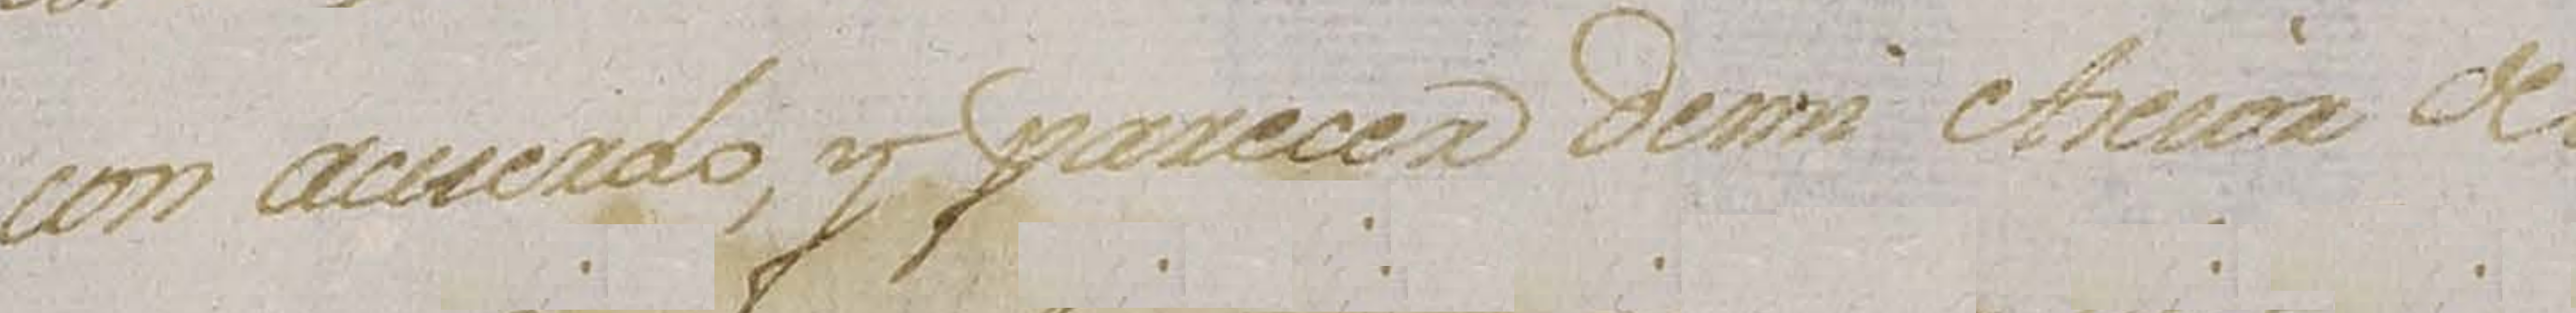 con acuerdo, y parecer demi Acesor de